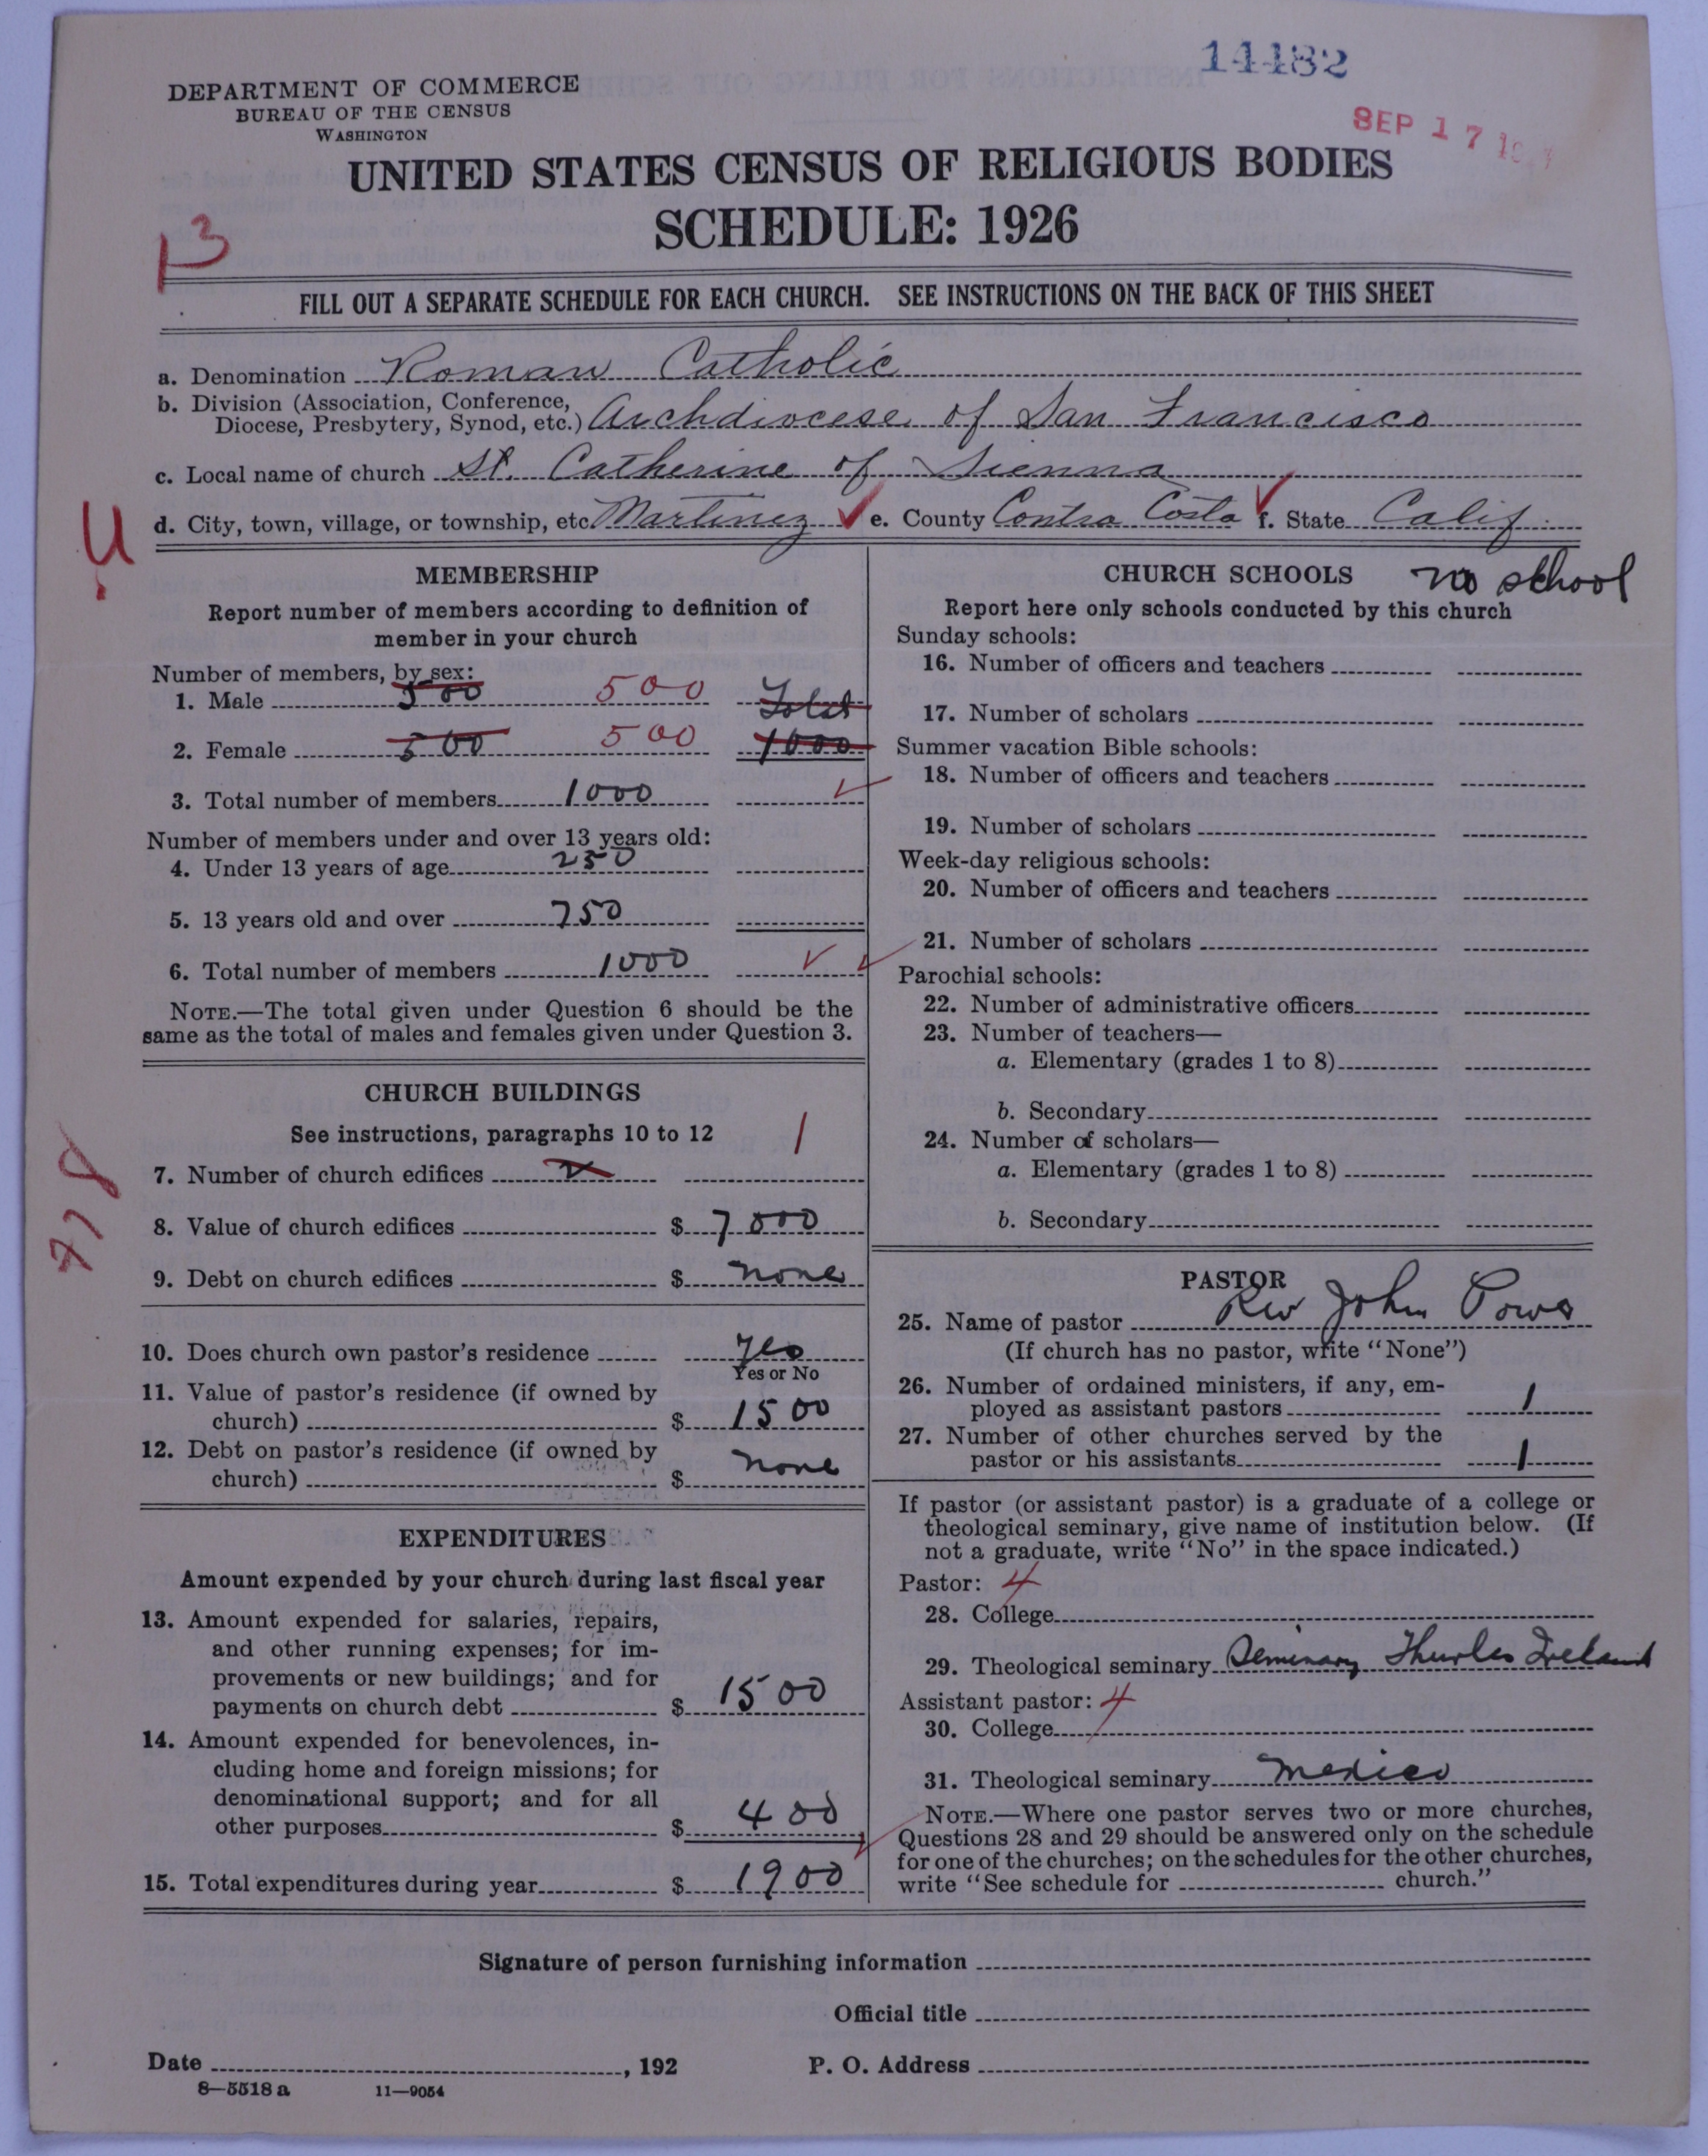 14482
SEP 17 19
DEPARTMENT OF COMMERCE
BUREAU OF THE CENSUS
WASHINGTON
UNITED STATES CENSUS OF RELIGIOUS BODIES
SCHEDULE: 1926
13
FILL OUT A SEPARATE SCHEDULE FOR EACH CHURCH. SEE INSTRUCTIONS ON THE BACK OF THIS SHEET
a. Denomination Roman Catholic
b. Division (Association, Conference,
Diocese, Presbytery, Synod, etc.) Archdiocese of San Francisco
c. Local name of church St. Catherine of Sienna
d. City, town, village, or township, etc Martinez e. County Contra Costa f. State Calif
U
MEMBERSHIP
Report number of members according to definition of
member in your church
Number of members, by sex:
1. Male 500 500 Total
2. Female 500 500 1000
3. Total number of members 1000
Number of members under and over 13 years old:
4. Under 13 years of age 250
5. 13 years old and over 750
6. Total number of members 1000
NOTE.—The total given under Question 6 should be the
same as the total of males and females given under Question 3.
CHURCH BUILDINGS
See instructions, paragraphs 10 to 12 1
7. Number of church edifices 2
8. Value of church edifices $ 7000
9. Debt on church edifices $ none
718
10. Does church own pastor's residence yes
Yes or No
11. Value of pastor's residence (if owned by
church) $ 1500
12. Debt on pastor's residence (if owned by
church) $ none
EXPENDITURES
Amount expended by your church during last fiscal year
13. Amount expended for salaries, repairs,
and other running expenses; for im-
provements or new buildings; and for
payments on church debt $ 1500
14. Amount expended for benevolences, in-
cluding home and foreign missions; for
denominational support; and for all
other purposes $ 400
15. Total expenditures during year $ 1900
CHURCH SCHOOLS no school
Report here only schools conducted by this church
Sunday schools:
16. Number of officers and teachers
17. Number of scholars
Summer vacation Bible schools:
18. Number of officers and teachers
19. Number of scholars
Week-day religious schools:
20. Number of officers and teachers
21. Number of scholars
Parochial schools:
22. Number of administrative officers
23. Number of teachers—
a. Elementary (grades 1 to 8)
b. Secondary
24. Number of scholars—
a. Elementary (grades 1 to 8)
b. Secondary
PASTOR
25. Name of pastor Rev John Power
(If church has no pastor, write "None")
26. Number of ordained ministers, if any, em-
ployed as assistant pastors 1
27. Number of other churches served by the
pastor or his assistants 1
If pastor (or assistant pastor) is a graduate of a college or
theological seminary, give name of institution below. (If
not a graduate, write "No" in the space indicated.)
Pastor: 4
28. College
29. Theological seminary Seminary Thurles Ireland
Assistant pastor: 4
30. College
31. Theological seminary Mexico
NOTE.—Where one pastor serves two or more churches,
Questions 28 and 29 should be answered only on the schedule
for one of the churches; on the schedules for the other churches,
write "See schedule for church."
Signature of person furnishing information
Official title
Date , 192 P. O. Address
8—5518 a 11—9054